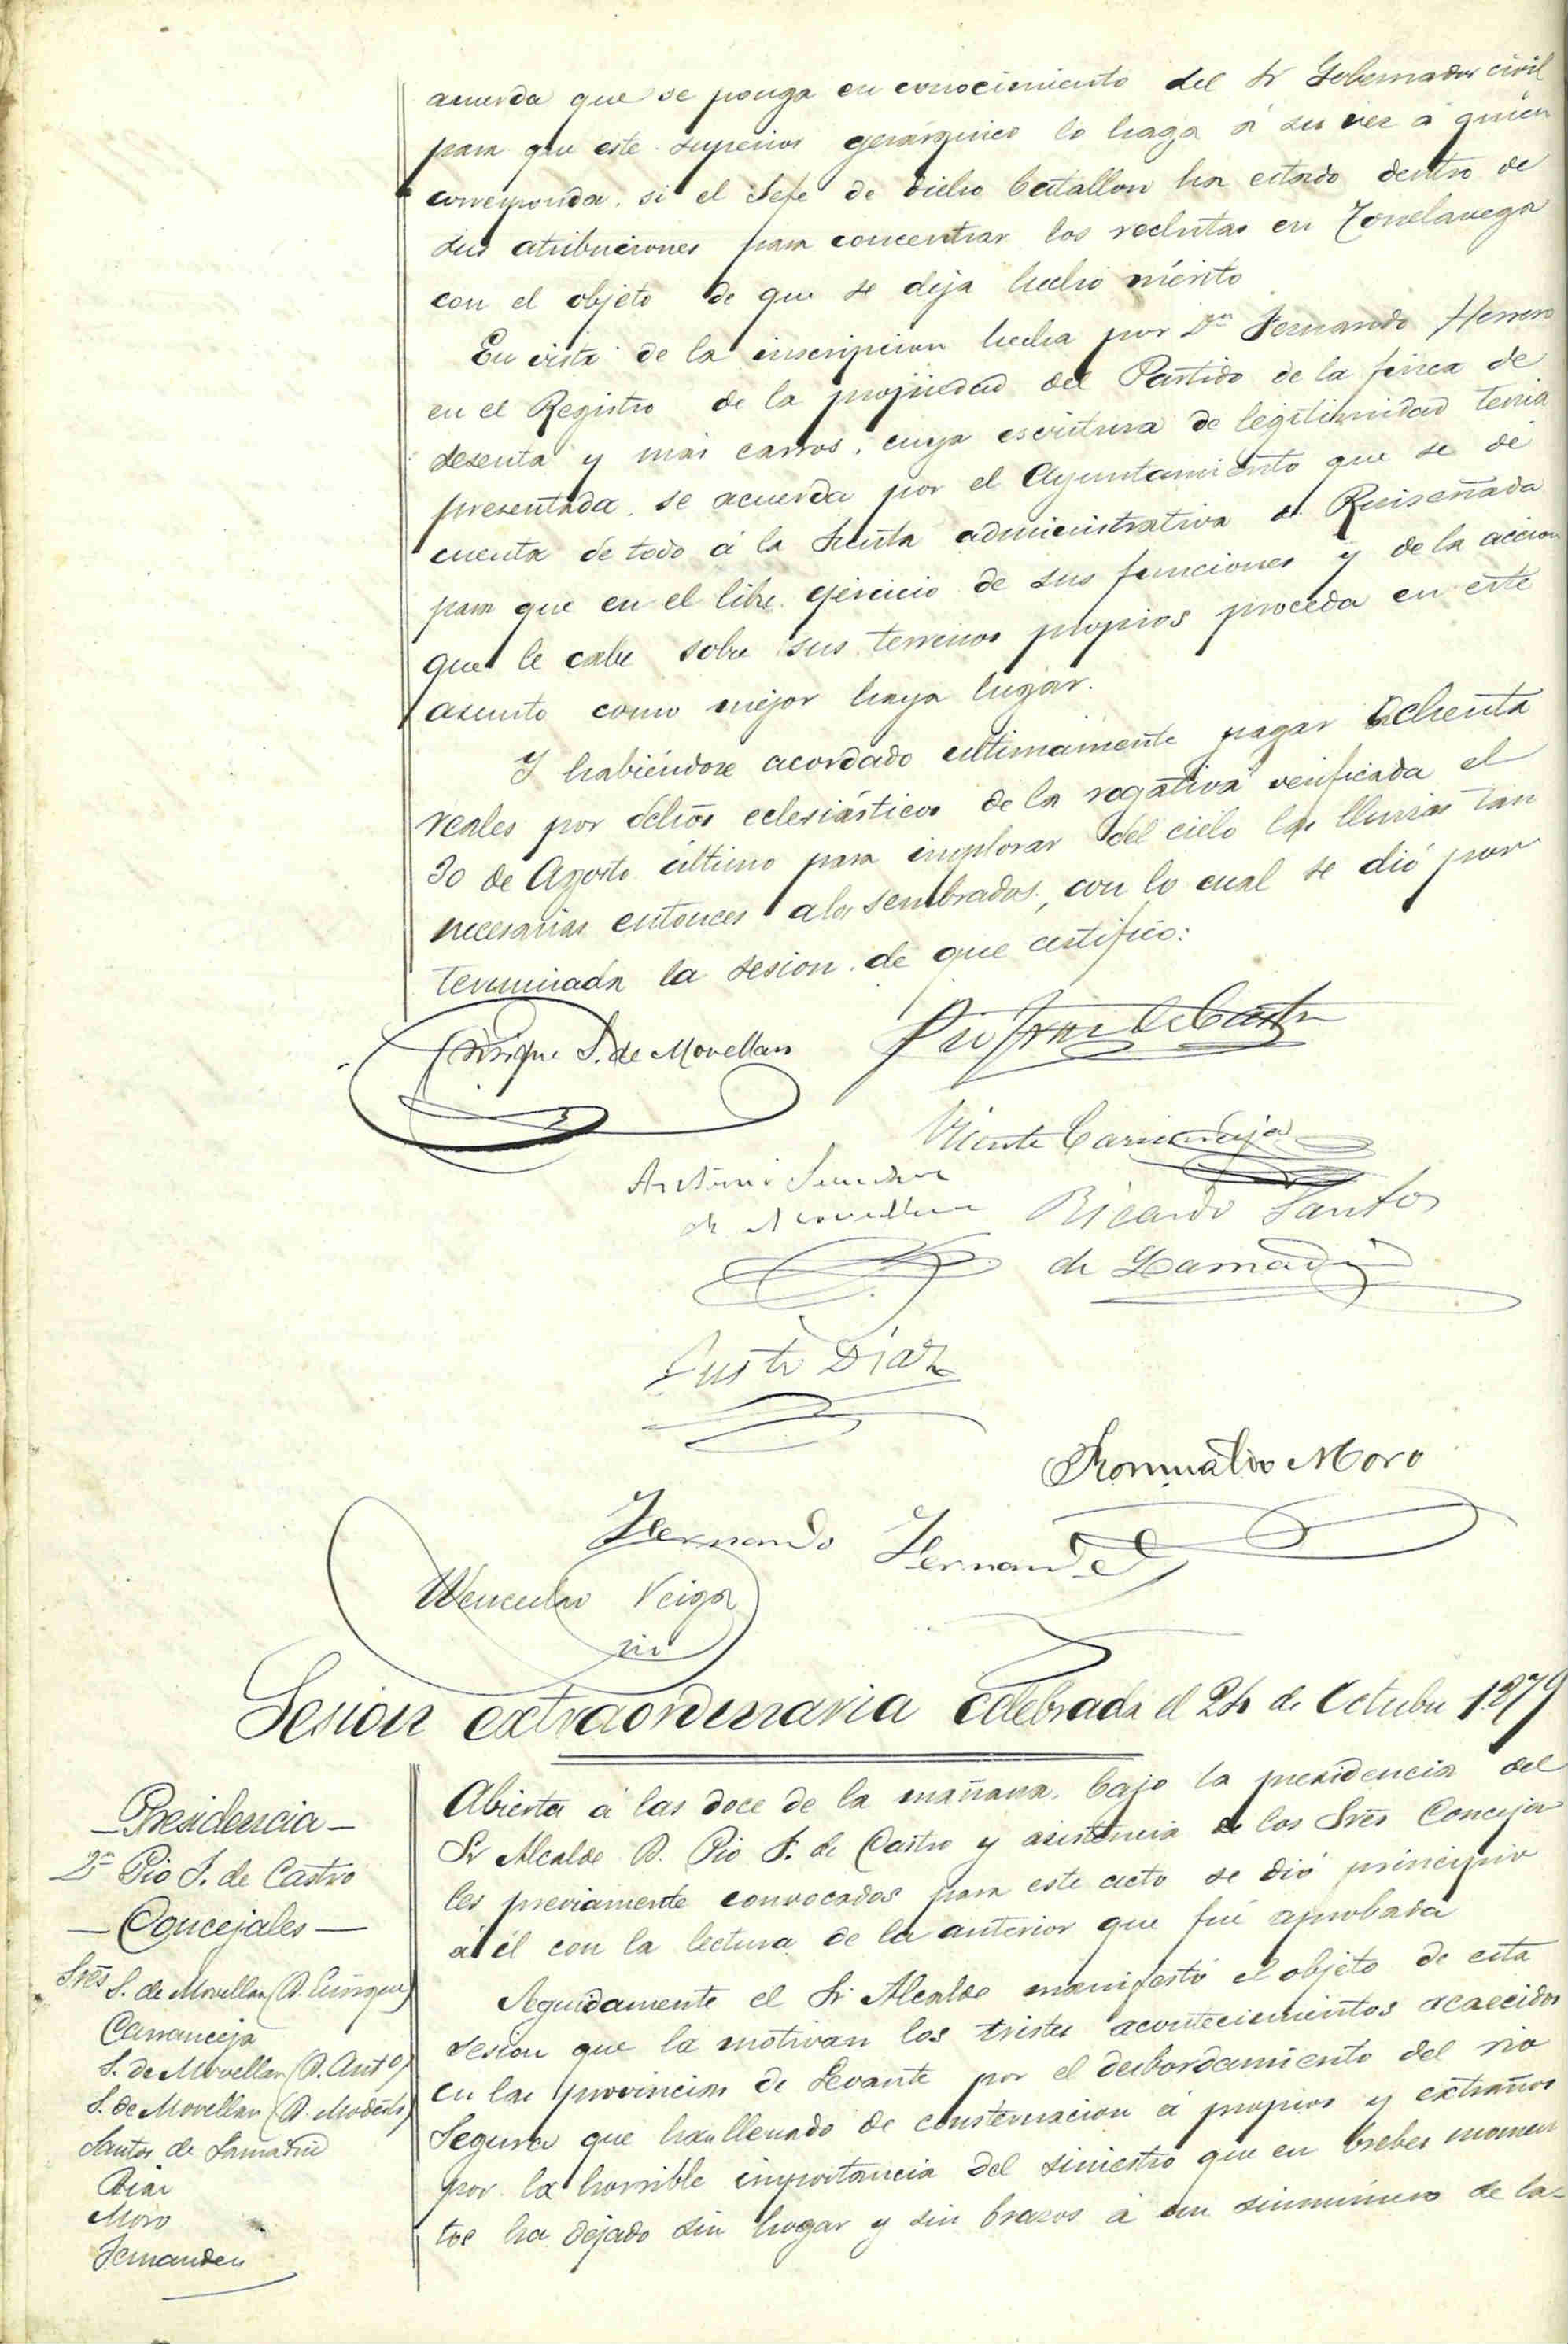 acuerda que se ponga en conocimiento del Sr Gobernador civil
para que este superior gerárquico lo haga á su vez á quien
corresponda, si el Jefe de dicho batallon ha estado dentro de
sus atribuciones para concentrar los reclutas en Torrelavega
con el objeto de que se deja hecho mérito
En vista de la inscripcion hecha por Dn Fernando Herrero
en el Registro de la propiedad del Partido de la finca de
sesenta y más carros, cuya escritura de legitimidad tenia
presentada, se acuerda por el Ayuntamiento que se dé
cuenta de todo á la Junta administrativa de Ruiseñada
para que en el libre ejercicio de sus funciones y de la accion
que le cabe sobre sus terrenos propios proceda en este
asunto como mejor haya lugar.
Y habiéndose acordado ultimamente pagar ochenta
reales por dchos eclesiásticos de la rogativa verificada el
30 de Agosto último para implorar del cielo las lluvias tan
necesarias entonces a los sembrados, con lo cual se dió por
terminada la sesion, de que certifico:
Enrique S. de Movellan
Pio de Castro
Vicente Carranceja
Antonio Sanchez
de Movellan
Ricardo Santos
de Lamadrid
Justo Diaz
Romualdo Moro
Fernando Fernandez
Wenceslao Veiga
Srio
Sesion extraordinaria celebrada el 24 de Octubre 1879
—Presidencia—
Dn Pio F. de Castro
—Concejales—
Sres S. de Movellan (D. Enrique)
Carranceja
S. de Movellan (D. Anto)
S. de Movellan (D. Modesto)
Santos de Lamadrid
Diaz
Moro
Fernandez
Abierta á las doce de la mañana, bajo la presidencia del
Sr Alcalde D. Pio F. de Castro y asistencia de los Sres Conceja
les previamente convocados para este acto se dió principio
a él con la lectura de la anterior que fué aprobada
Seguidamente el Sr Alcalde manifestó el objeto de esta
sesion que la motivan los tristes acontecimientos acaecidos
en las provincias de Levante por el desbordamiento del rio
Segura que han llenado de consternacion á propios y extraños
por la horrible importancia del siniestro que en brebes momen
tos ha dejado sin hogar y sin brazos á un sinnúmero de la-